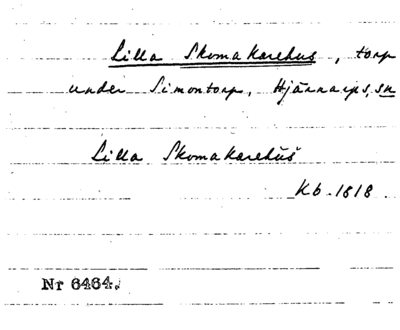 Lilla Skomakarehus, torp
under Simontorp, Hjärnarps, sn
Lilla Skomakarehus
Kb. 1818
Nr 6464.